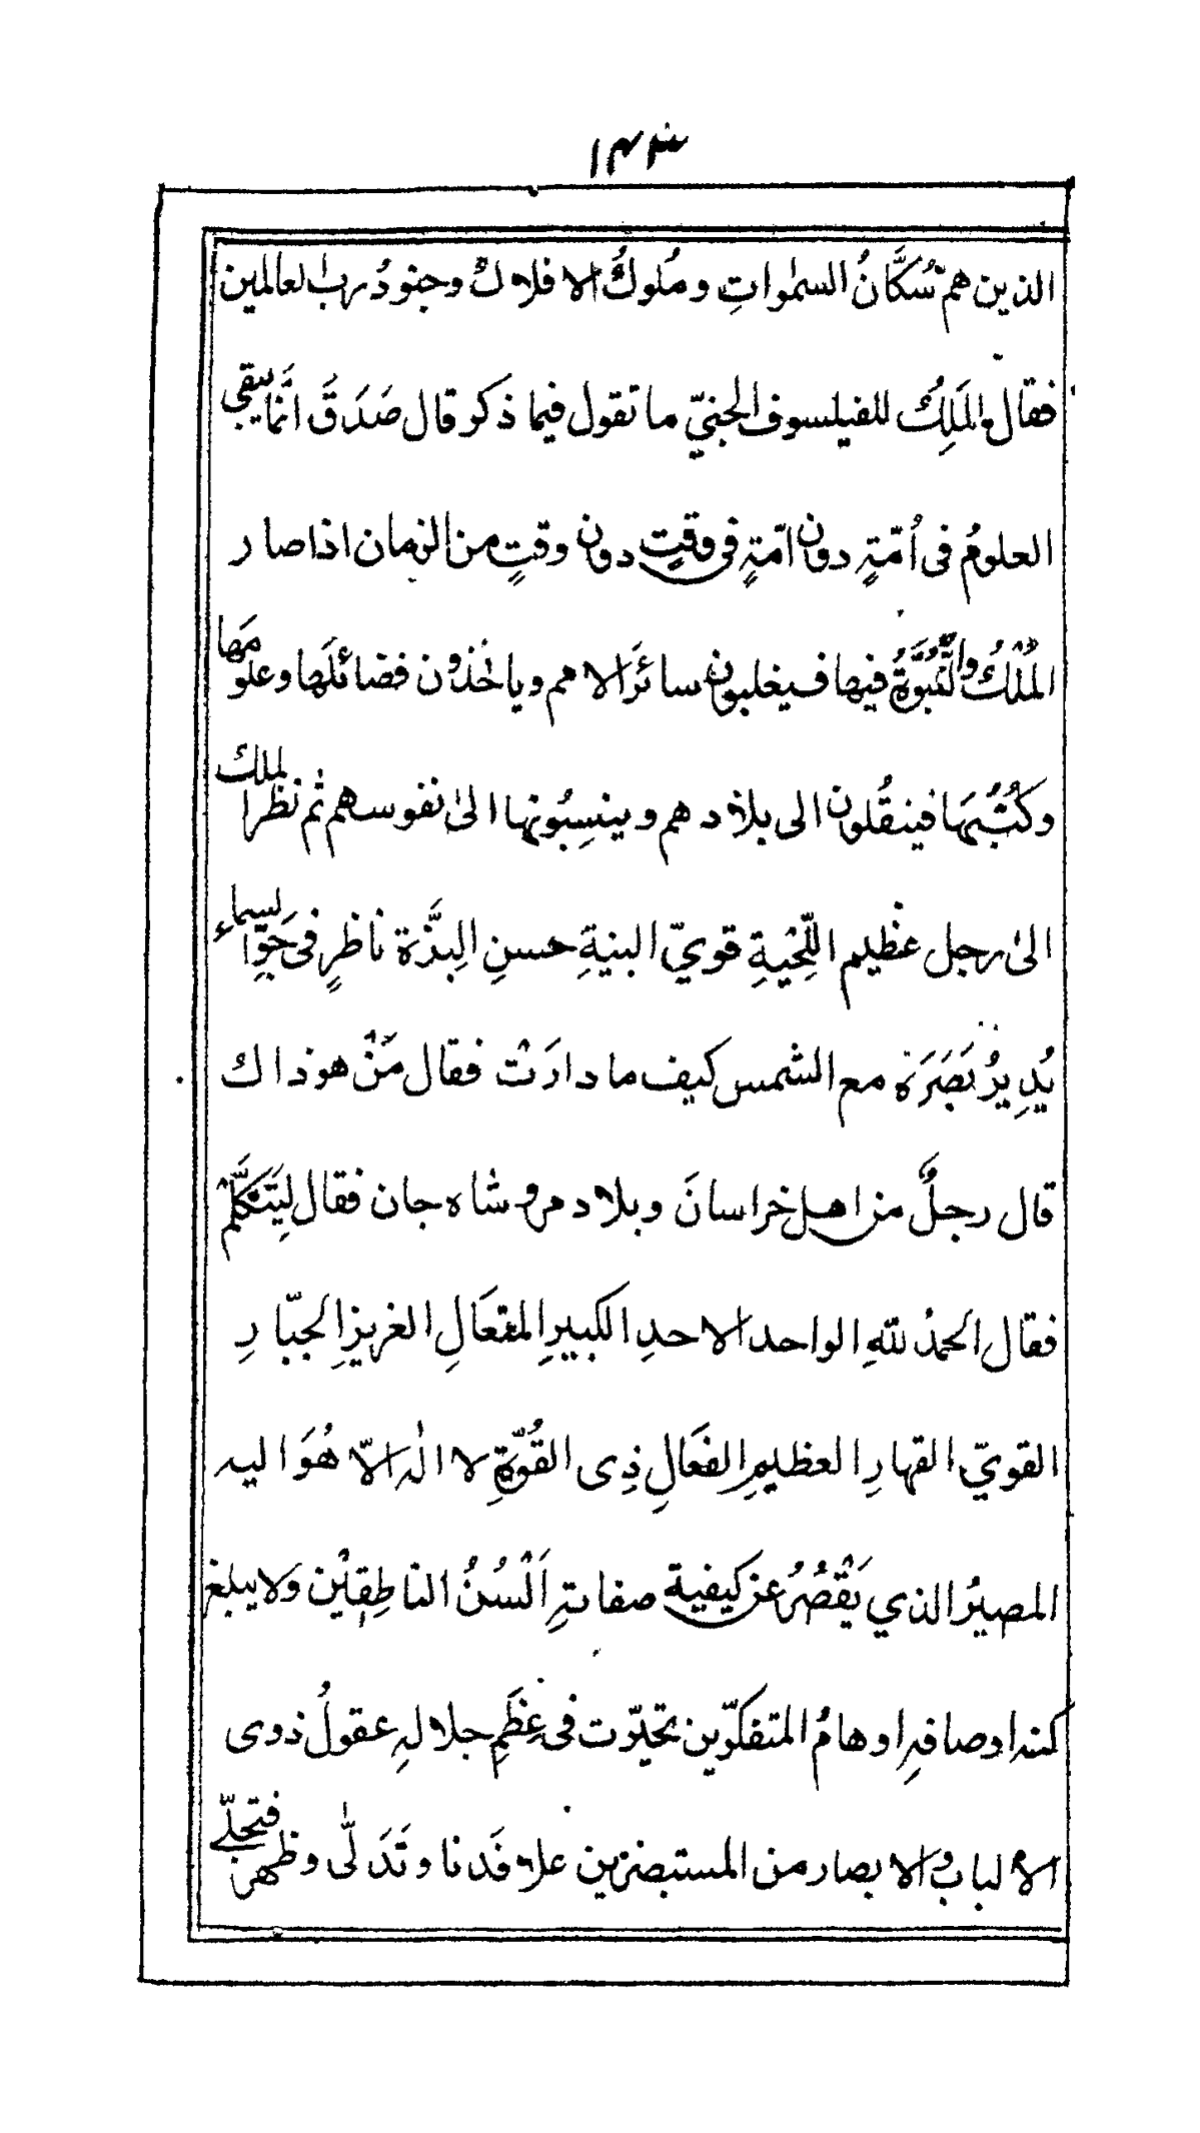 الذين هم سُكَّانُ السمٰواتِ ومُلوكُ الافلاك وجنودُ رب العالمين
فقال المَلِكُ للفيلسوف الجنيّ ما تقول فيما ذكر قال صَدَقَ انَّما يبقى
العلومُ فى اُمّةٍ دون امّةٍ فى وقتٍ دون وقتٍ من الزمان اذا صار
المُلْكُ والنُّبُوَّةُ فيها فيغلبون سائرَ الامم وياخُذُون فضائلَها وعلومَها
وكُتُبَهَا فينقُلون الى بلادهم وينسِبُونها الىٰ نفوسهم ثم نظر الملك
الىٰ رجل عظيم اللِّحْيةِ قويّ البنيةِ حسنِ البِزَّة ناظرٍ فى جَوِّ السماء
يُدِيرُ بَصَرَهٗ مع الشمس كيف ما دارَتْ فقال مَنْ هو ذاك
قال رجلٌ من اهل خراسانَ وبلاد مرو شاه جان فقال لِيَتَكَلَّمْ
فقال الحمدُ للّٰهِ الواحد الاحدِ الكبيرِ المتعَالِ العزيزِ الجبّارِ
القويّ القهارِ العظيمِ الفعَالِ ذِى القُوَّةِ لا الٰه الّا هُوَ اليه
المصيرُ الذي يَقْصُرُ عن كيفية صفاتهِ اَلْسُنُ الناطِقِيْن ولا يبلغ
كنه اوصافهِ اوهامُ المتفكّرين تحيّرت فى عِظَمِ جلالهِ عقولُ ذوى
الالباب والابصار من المستبصرين علا فَدنا وتَدَلّٰى وظهر فتجلّے